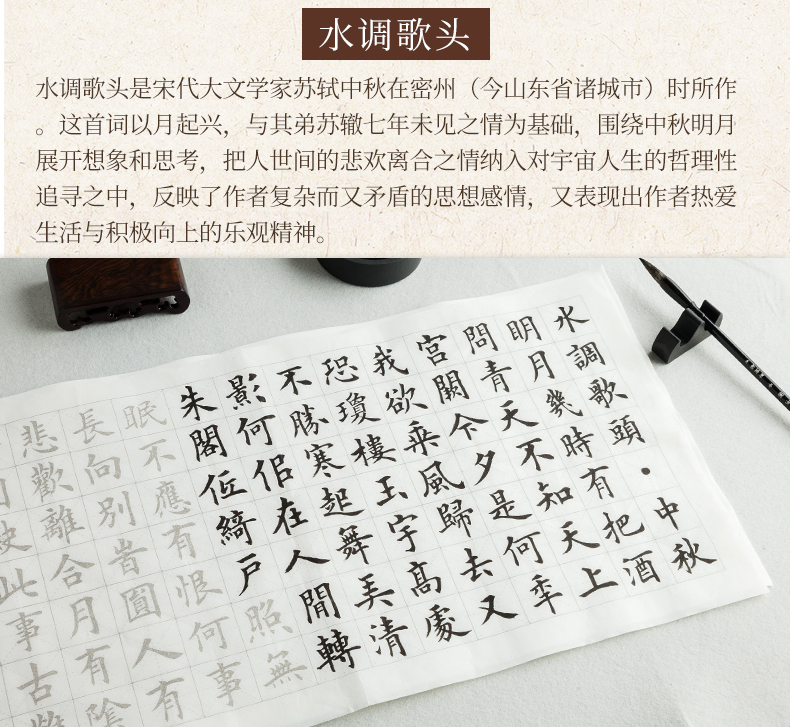 水调歌头
水调歌头是宋代大文学家苏轼中秋在密州（今山东省诸城市）时所作
。这首词以月起兴，与其弟苏辙七年未见之情为基础，围绕中秋明月
展开想象和思考，把人世间的悲欢离合之情纳入对宇宙人生的哲理性
追寻之中，反映了作者复杂而又矛盾的思想感情，又表现出作者热爱
生活与积极向上的乐观精神。
水調歌頭·中秋
明月幾時有把酒
問青天不知天上
宮闕今夕是何秊
我欲乘風歸去又
恐瓊樓玉宇高處
不勝寒起舞弄清
影何佀在人間轉
朱閣低綺戶照無
眠不應有恨何事
長向別旹圓人有
悲歡離合月有陰
此事古